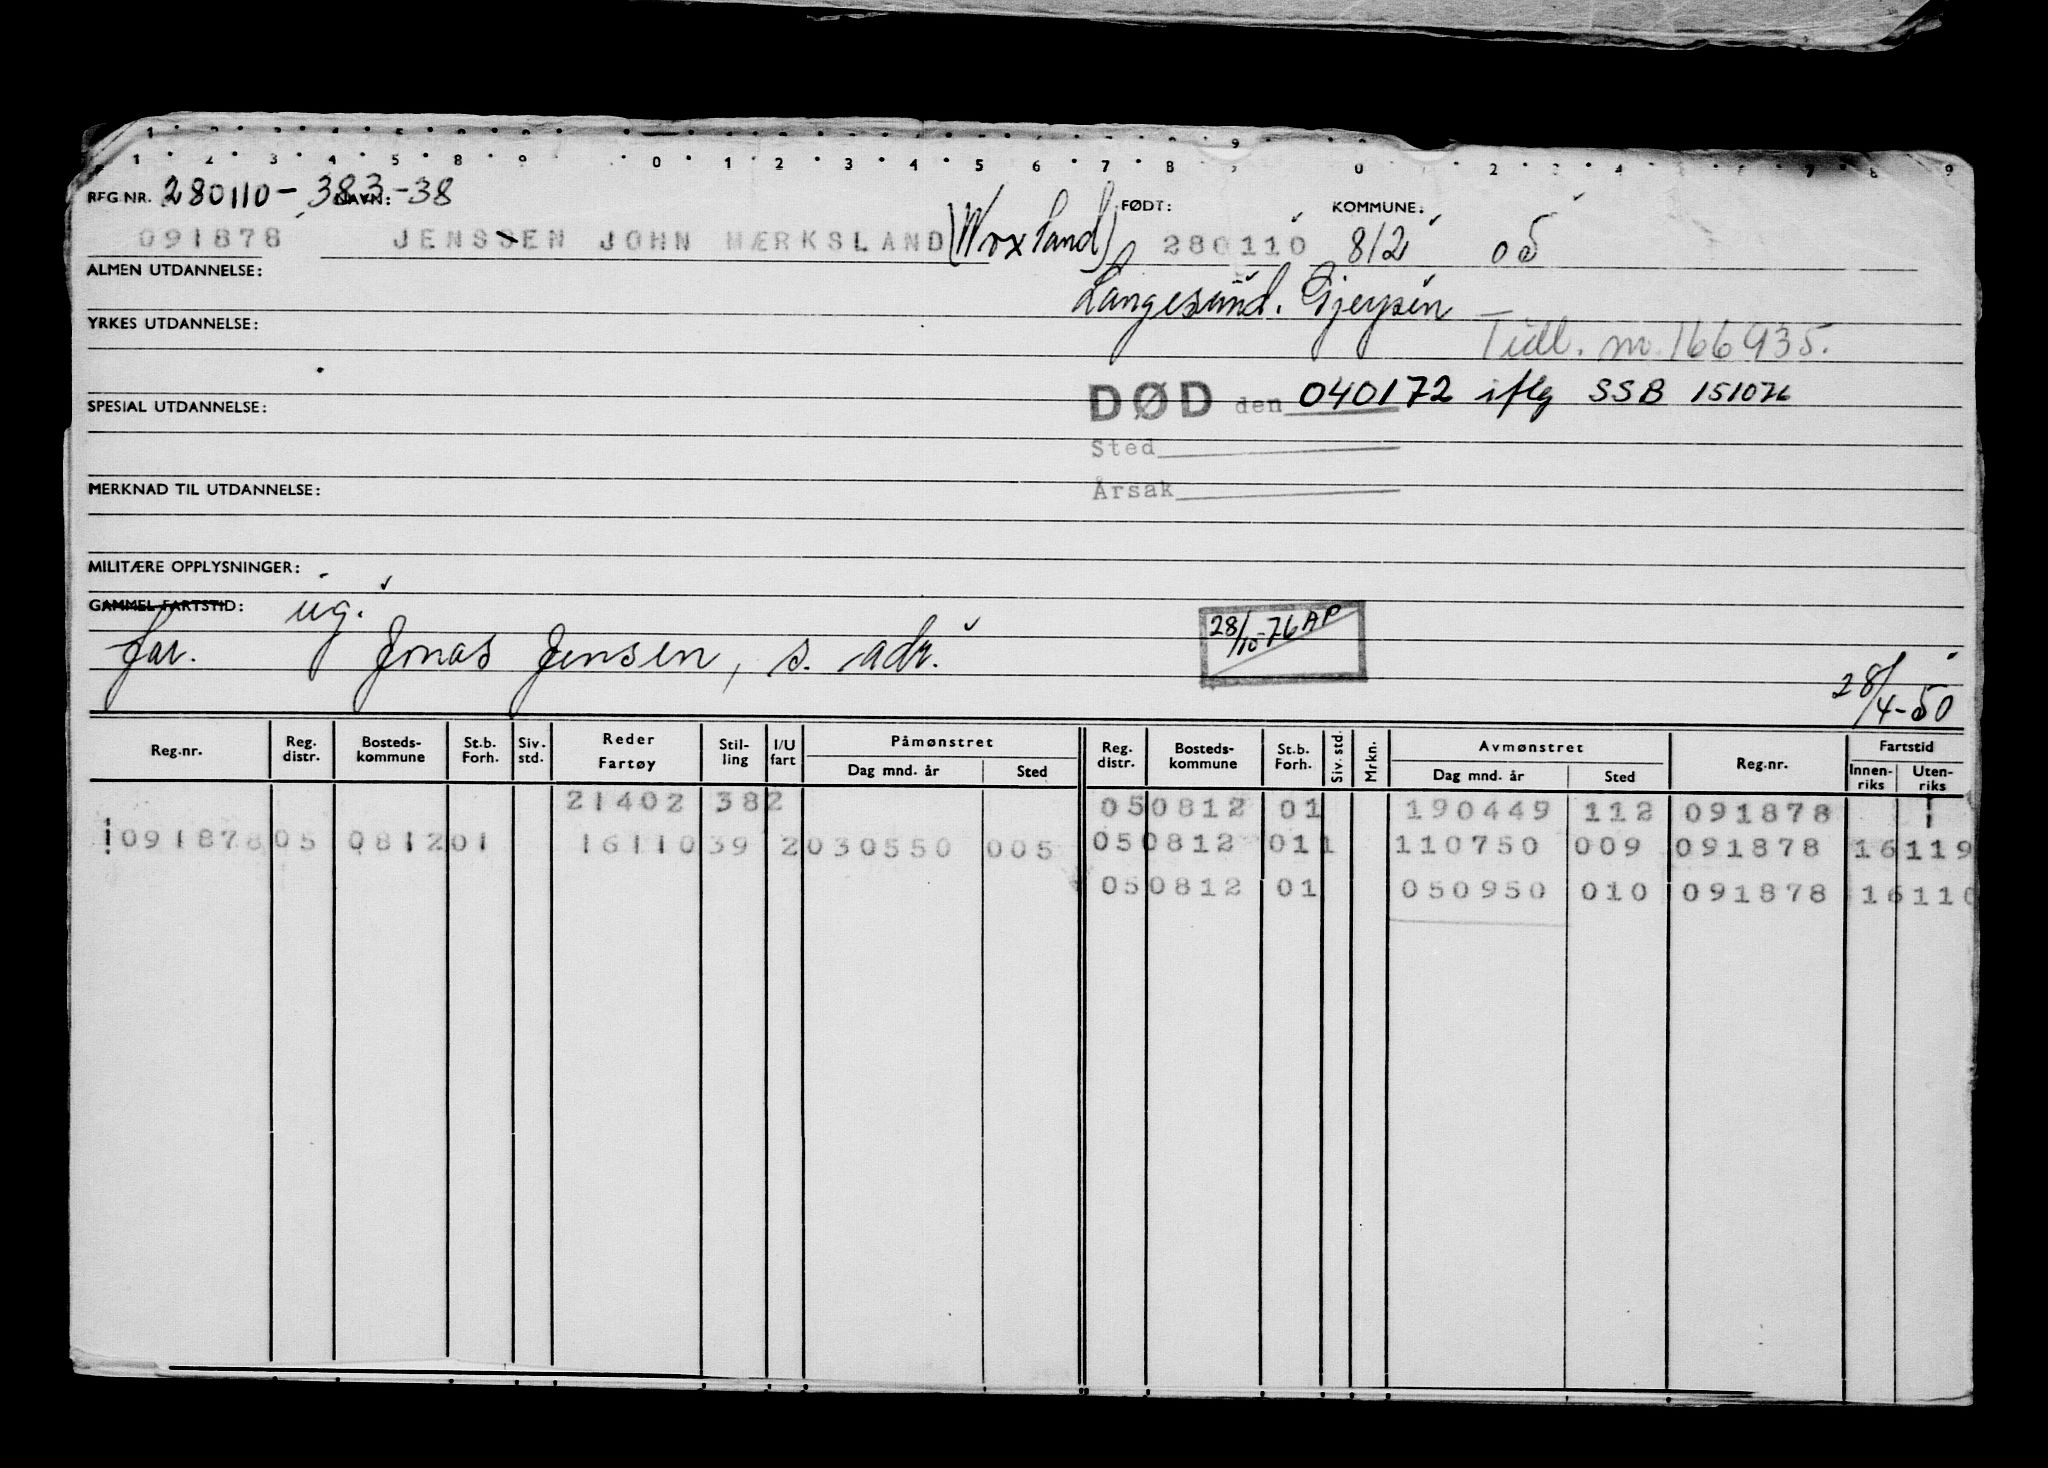 REG.NR. 280110-383-38 NAVN: FØDT: KOMMUNE:
091878 JENSSEN JOHN MÆRKSLAND (Woxland) 280110 812 05
ALMEN UTDANNELSE:
Langesund. Gjerpen
YRKES UTDANNELSE:
Tidl. nr. 166935.
DØD den 040172 iflg SSB 151076
SPESIAL UTDANNELSE:
Sted
MERKNAD TIL UTDANNELSE:
Årsak
MILITÆRE OPPLYSNINGER:
GAMMEL FARTSTID: ug.
far. Jonas Jensen, s. adr.
28/10-76 AP
28/4-50
Reg.nr. Reg. distr. Bosteds-kommune St.b. Forh. Siv. std. Reder Fartøy Stil-ling I/U fart Påmønstret Dag mnd. år Sted Reg. distr. Bosteds-kommune St.b. Forh. Siv. std. Mrkn. Avmønstret Dag mnd. år Sted Reg.nr. Fartstid Innen-riks Uten-riks
21402 382 050812 01 190449 112 091878
091878 05 0812 01 16110 39 2 030550 005 050812 011 110750 009 091878 16119
050812 01 050950 010 091878 16110